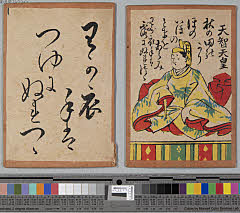 天智天皇
秋の田の
かりほの
いほの
とまを
あらみ
わか衣
手は
つゆに
ぬれつゝ